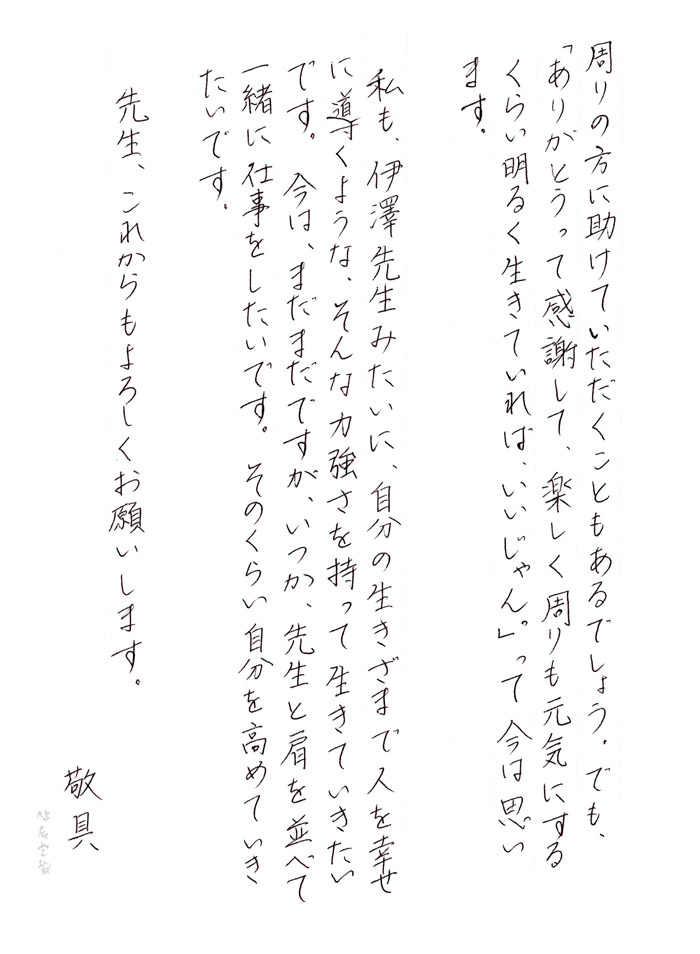 周りの方に助けていただくこともあるでしょう。でも、
「ありがとうって感謝して、楽しく周りも元気にする
くらい明るく生きていれば、いいじゃん。」って今は思い
ます。
私も、伊澤先生みたいに、自分の生きざまで人を幸せ
に導くような、そんな力強さを持って生きていきたい
です。今は、まだまだですが、いつか、先生と肩を並べて
一緒に仕事をしたいです。そのくらい自分を高めていき
たいです。
先生、これからもよろしくお願いします。
敬具